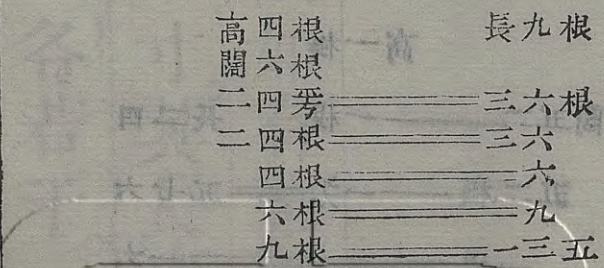 高四根 長九根
闊六根
二四平方═══三六根
二四根═══三六
四根═══六
六根═══九
九根═══一三五